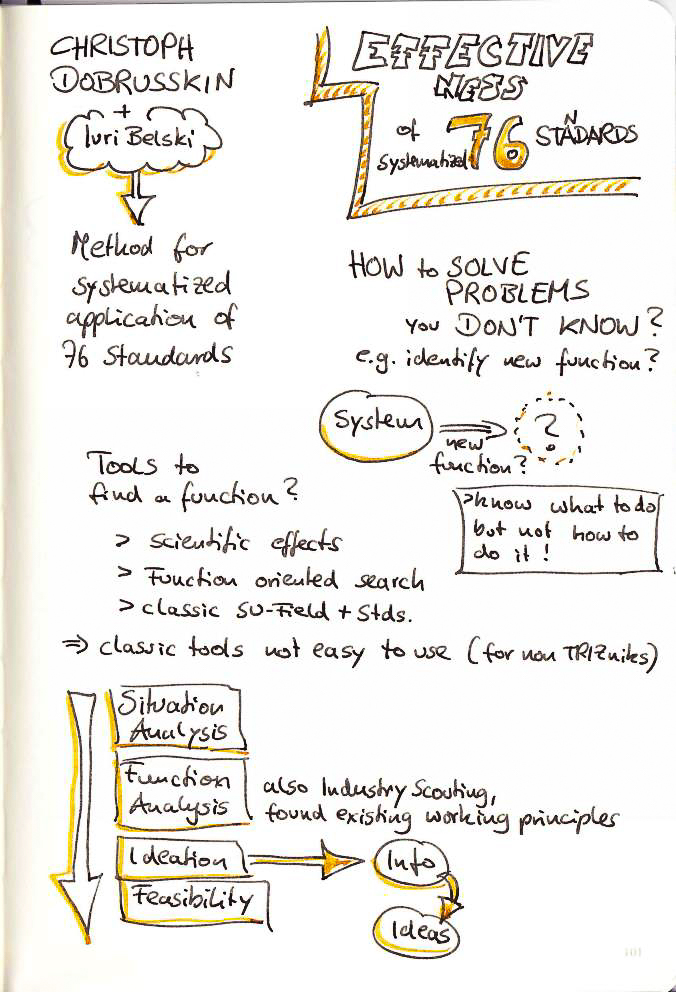 CHRISTOPH
DOBRUSSKIN
+
Iuri Belski
Method for
systematized
application of
76 Standards
EFFECTIVE
NESS
of
systematized
76
STANDARDS
HOW to SOLVE
PROBLEMS
you DON'T KNOW?
e.g. identify new function?
System
new
function?
?
>know what to do
but not how to
do it!
TOOLS to
find a function?
> scientific effects
> Function oriented search
> classic SU-Field + Stds.
⇒ classic tools not easy to use (for non TRIZniks)
Situation
Analysis
Function
Analysis
also Industry Scouting,
found existing working principles
Ideation
Info
Feasibility
Ideas
101